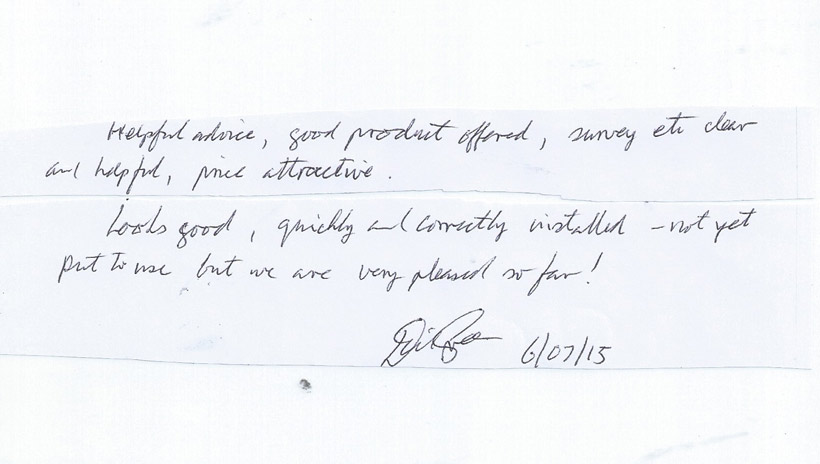 Helpful advice, good product offered, survey etc clear
and helpful, price attractive.
Looks good, quickly and correctly installed - not yet
put to use but we are very pleased so far!
6/07/15